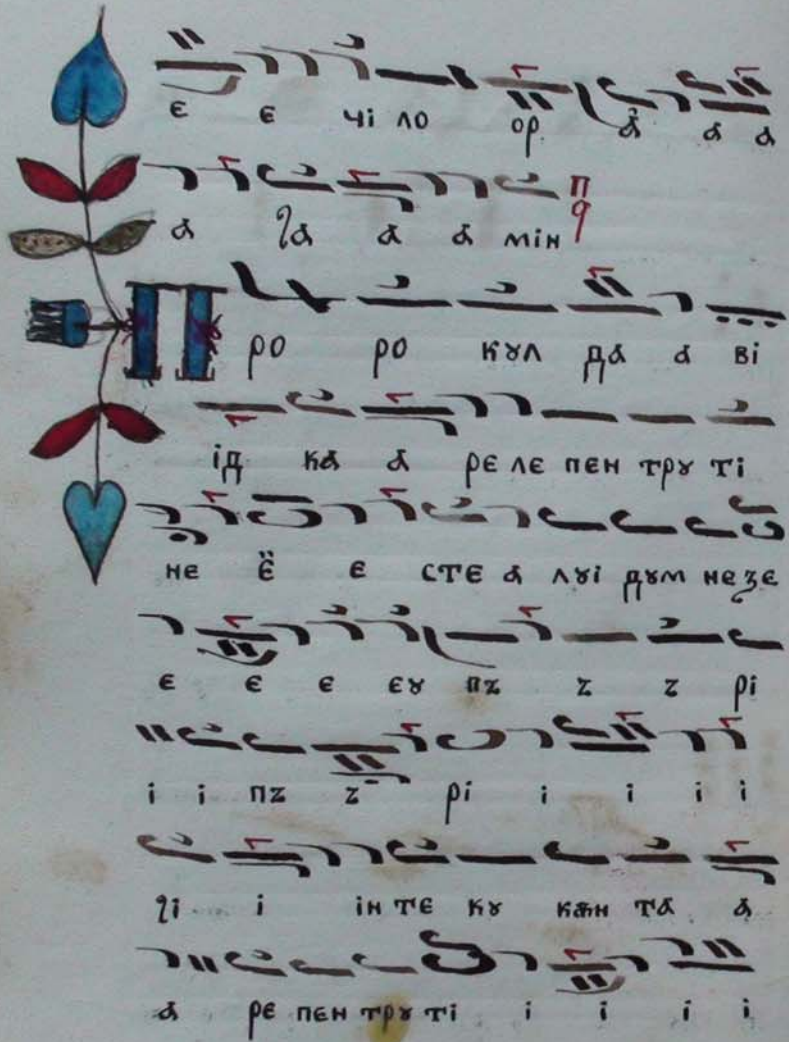 є є чі ло ор ა́ а а
а ꙋа а а мін
П ро ро кꙋл да а ві
ід ка а рє лє пєн трꙋ ті
нє ё є стє а лꙋі дꙋм нє зє
є є є єꙋ пꙁ ꙁ ꙁ рі
і і пꙁ ꙁ рі і і і і
чі і ін тє кꙋ кѫн та а
а рє пєн трꙋ ті і і і і